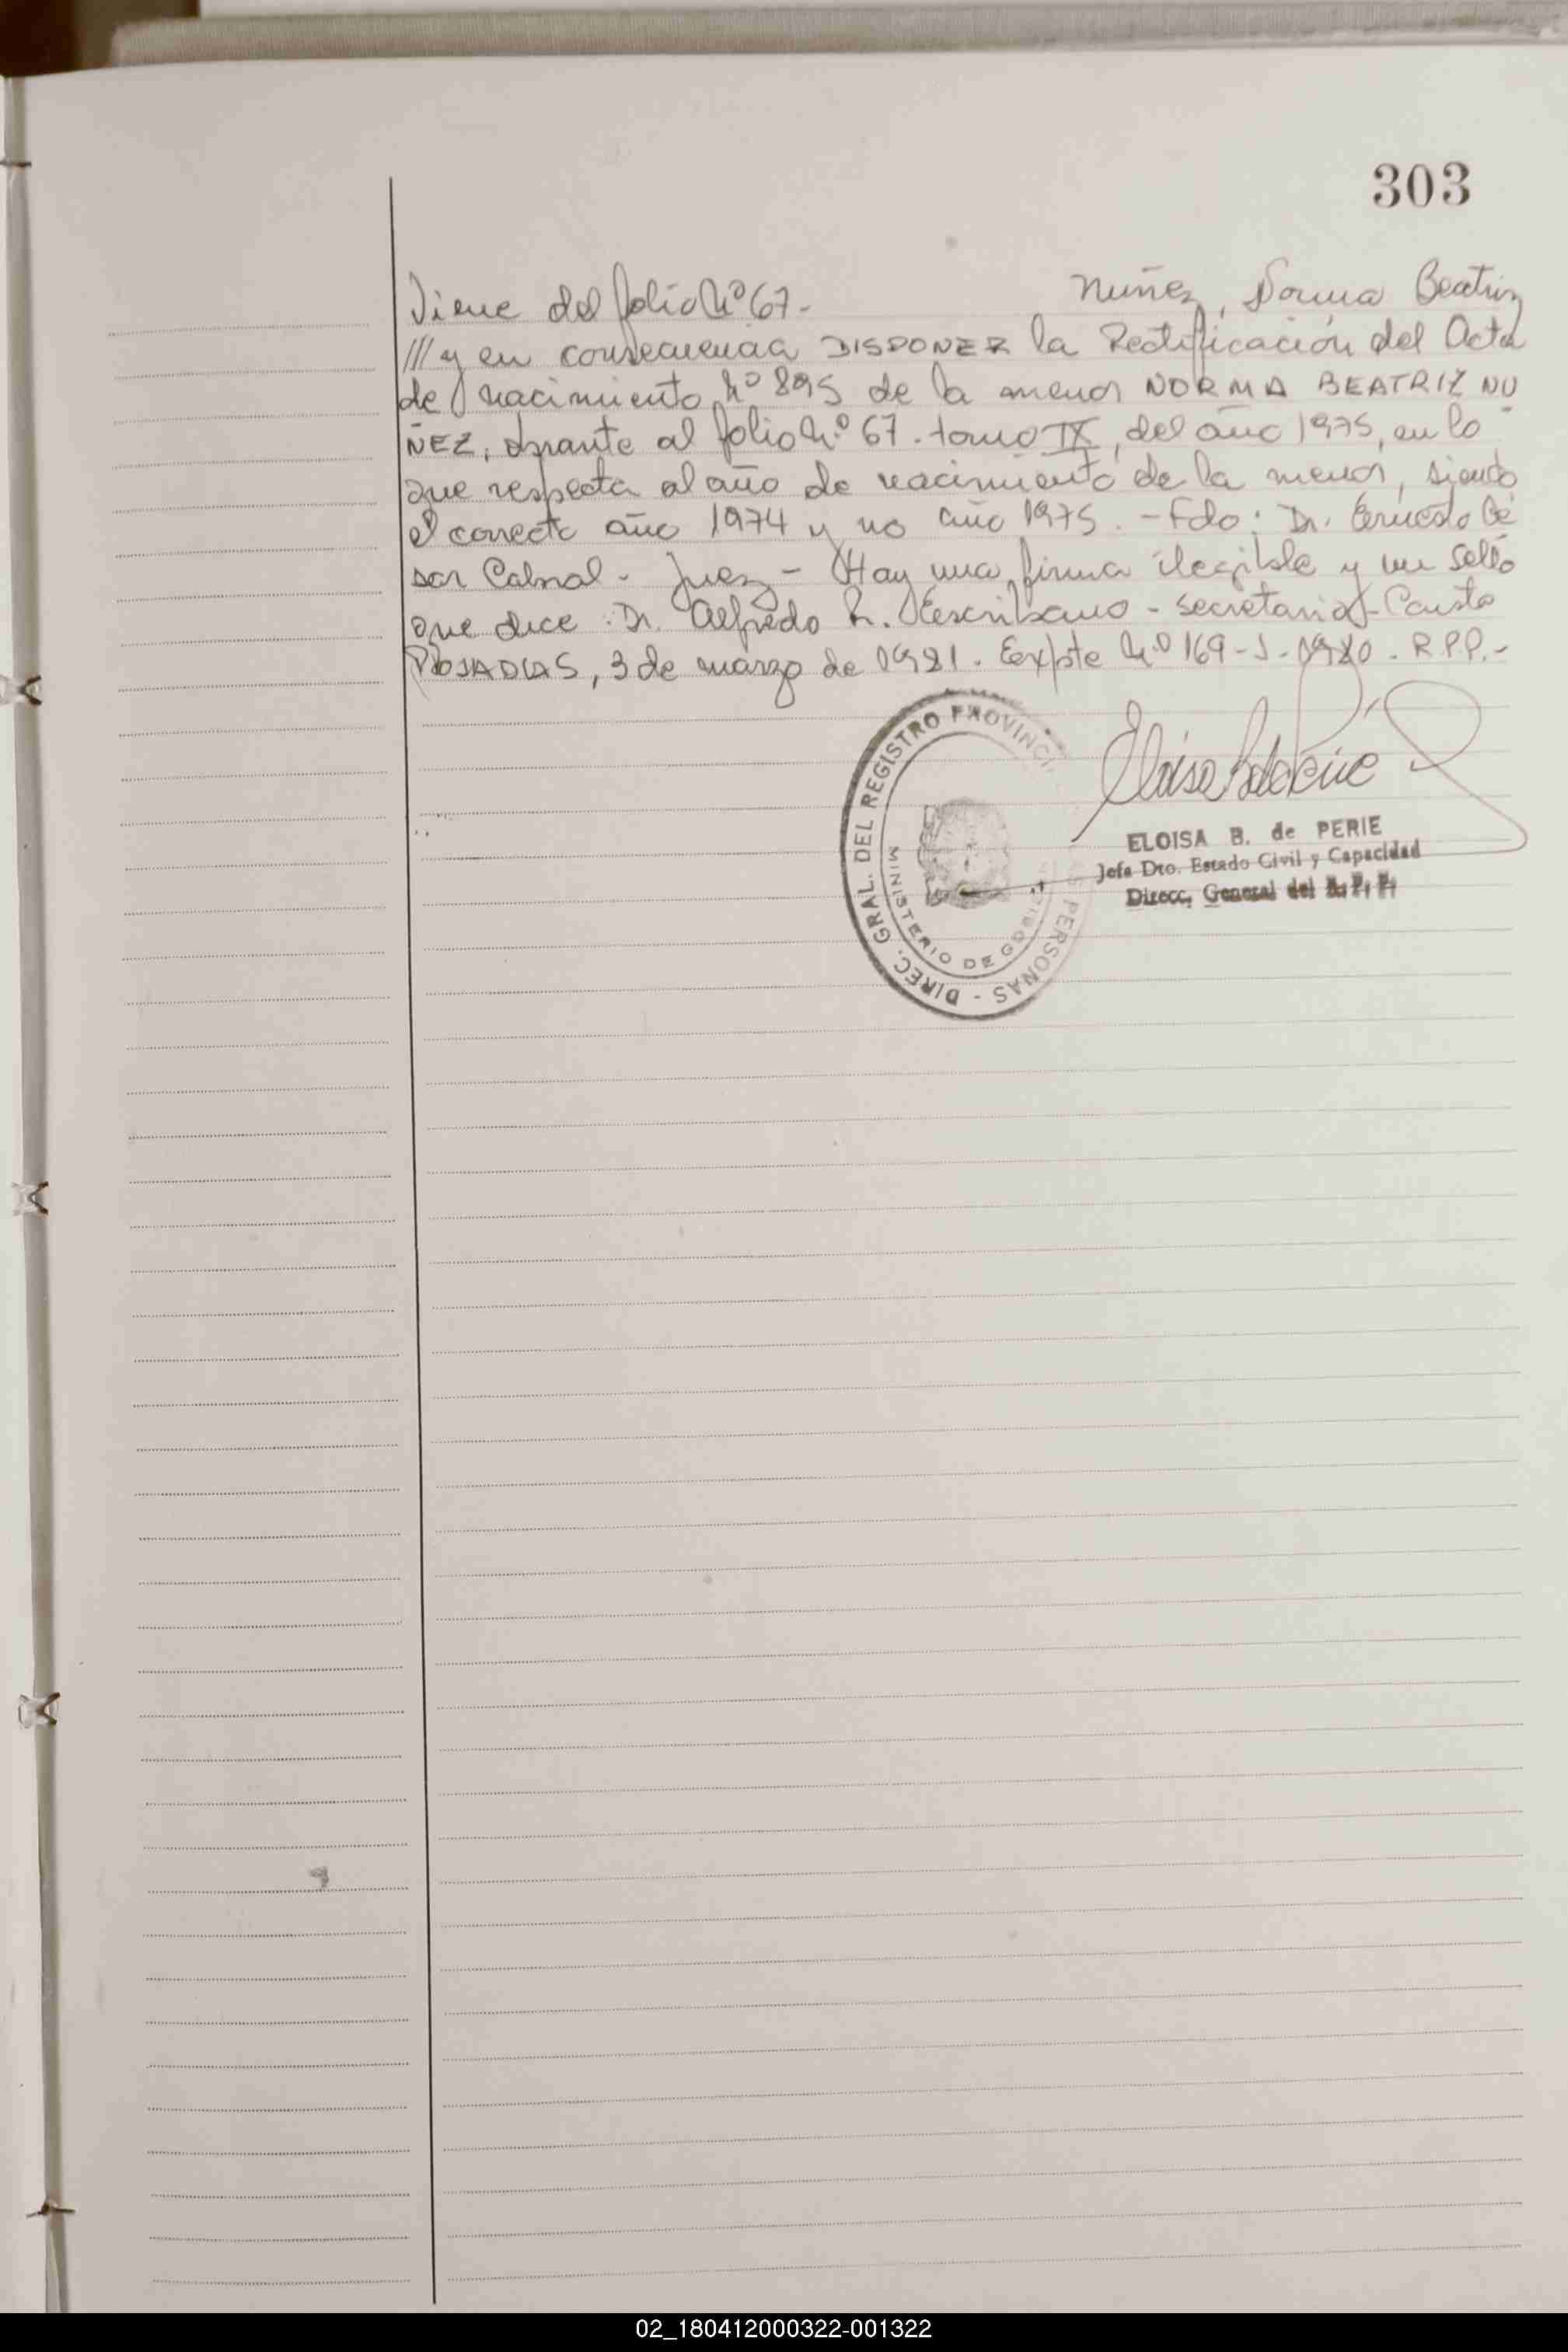 303
Viene del folio Nº 67- Nuñez, Norma Beatriz
/// y en consecuencia DISPONER la Rectificación del Acta
de nacimiento Nº 895 de la menor NORMA BEATRIZ NU
ÑEZ, obrante al folio Nº 67. tomo IX, del año 1975, en lo
que respecta al año de nacimiento de la menor, siendo
el correcto año 1974 y no año 1975. - Fdo: Dr. Ernesto Cé
sar Cabral - Juez - Hay una firma ilegible y un sello
que dice: Dr. Alfredo R. Escribano - Secretario - Consta
POSADAS, 3 de marzo de 1981. Expte Nº 169-J-1980. R.P.P.-
DIREC. GRAL. DEL REGISTRO PROVINCI PERSONAS -
MINISTERIO DE GOBIE
ELOISA B. de PERIE
Jefa Dto. Estado Civil y Capacidad
Direcc. General del R. P. P.
02_180412000322-001322